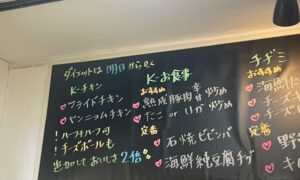 ダイエットは明日からOK
K-チキン
フライドチキン
ヤンニョムチキン
! ハーフハーフの
! チーズボールも
追加しておいしさ2倍!
K-お食事
おすすめ
熟成豚肉
甘辛炒め
たこ or いか炒め
定番
石焼ビビンバ
海鮮純豆腐チゲ
チヂミ
おすすめ
海鮮
チーズ
定番
野
キ